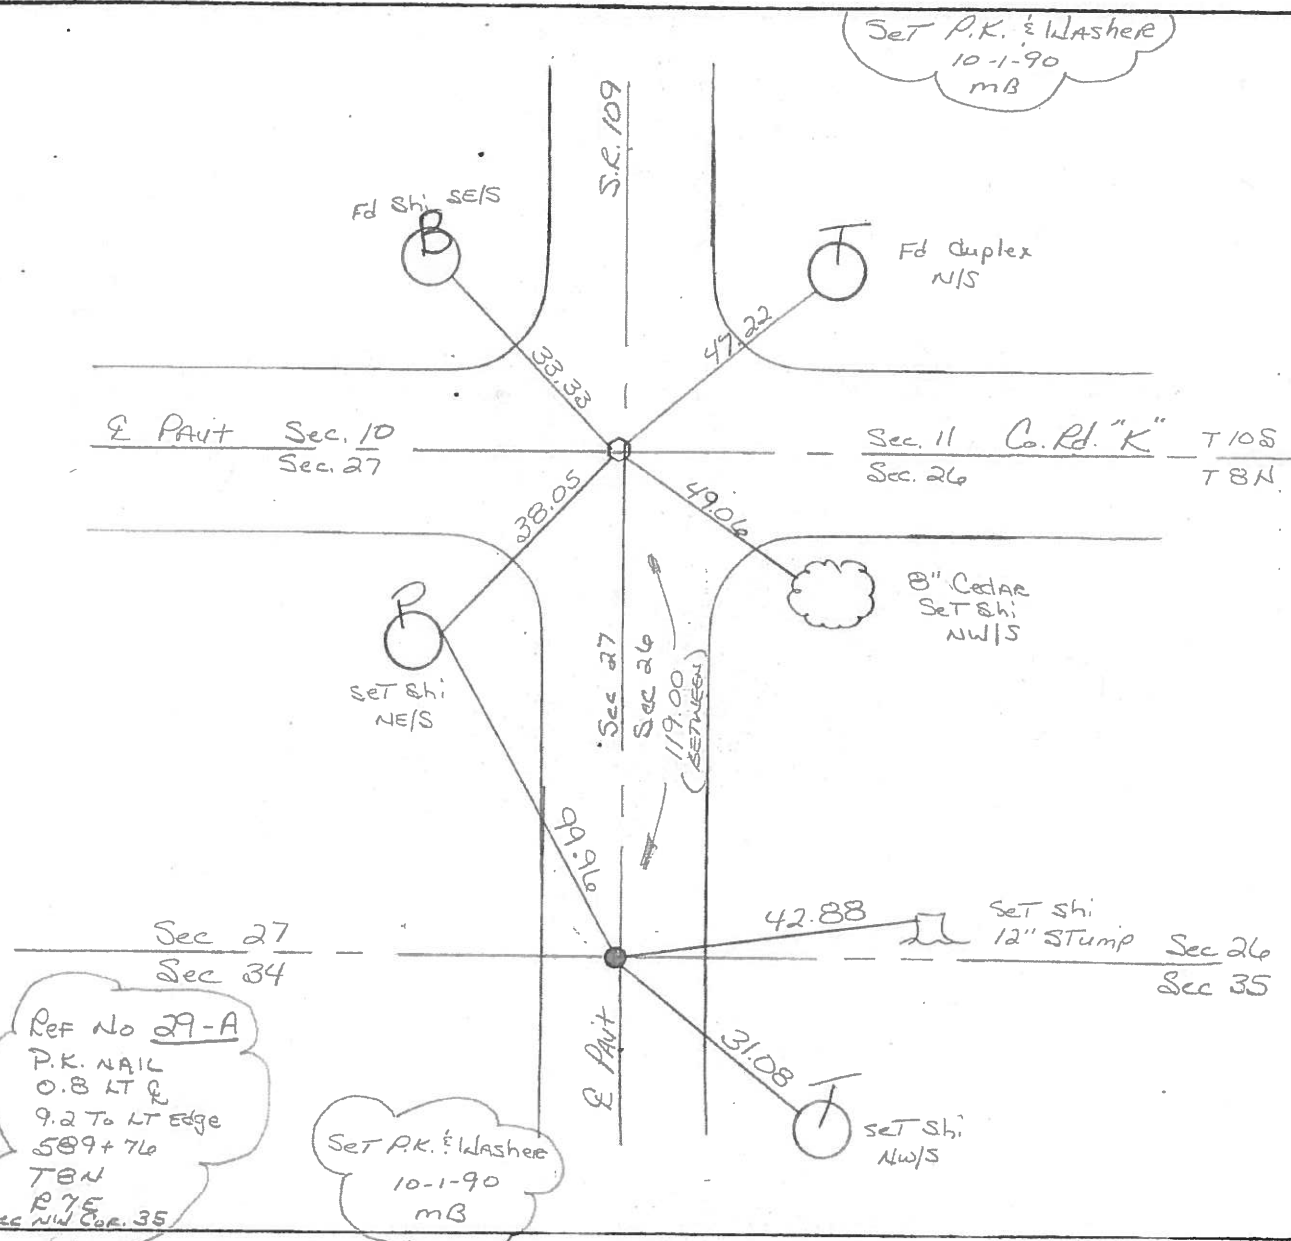 SeT P.K. & WAsheR
10-1-90
mB
S.R. 109
Fd Shi SE/S
B
T
Fd duplex
N/S
33.33
47.22
℄ PAvt
Sec. 10
Sec. 27
Sec. 11
Sec. 26
Co. Rd. "K"
T 10 S
T 8 N.
38.05
49.06
P
SeT Shi
NE/S
8" CedAR
SeT Shi
NW/S
Sec 27
Sec 26
119.00
(BETWEEN)
99.96
42.88
SeT Shi
12" STump
Sec 27
Sec 34
Sec 26
Sec 35
℄ PAvt
31.08
T
SeT Shi
NW/S
ReF No 29-A
P.K. NAIL
0.8 LT ℄
9.2 To LT Edge
589+76
T8N
R7E
NW Cor. 35
SeT P.K. & WAsheR
10-1-90
mB